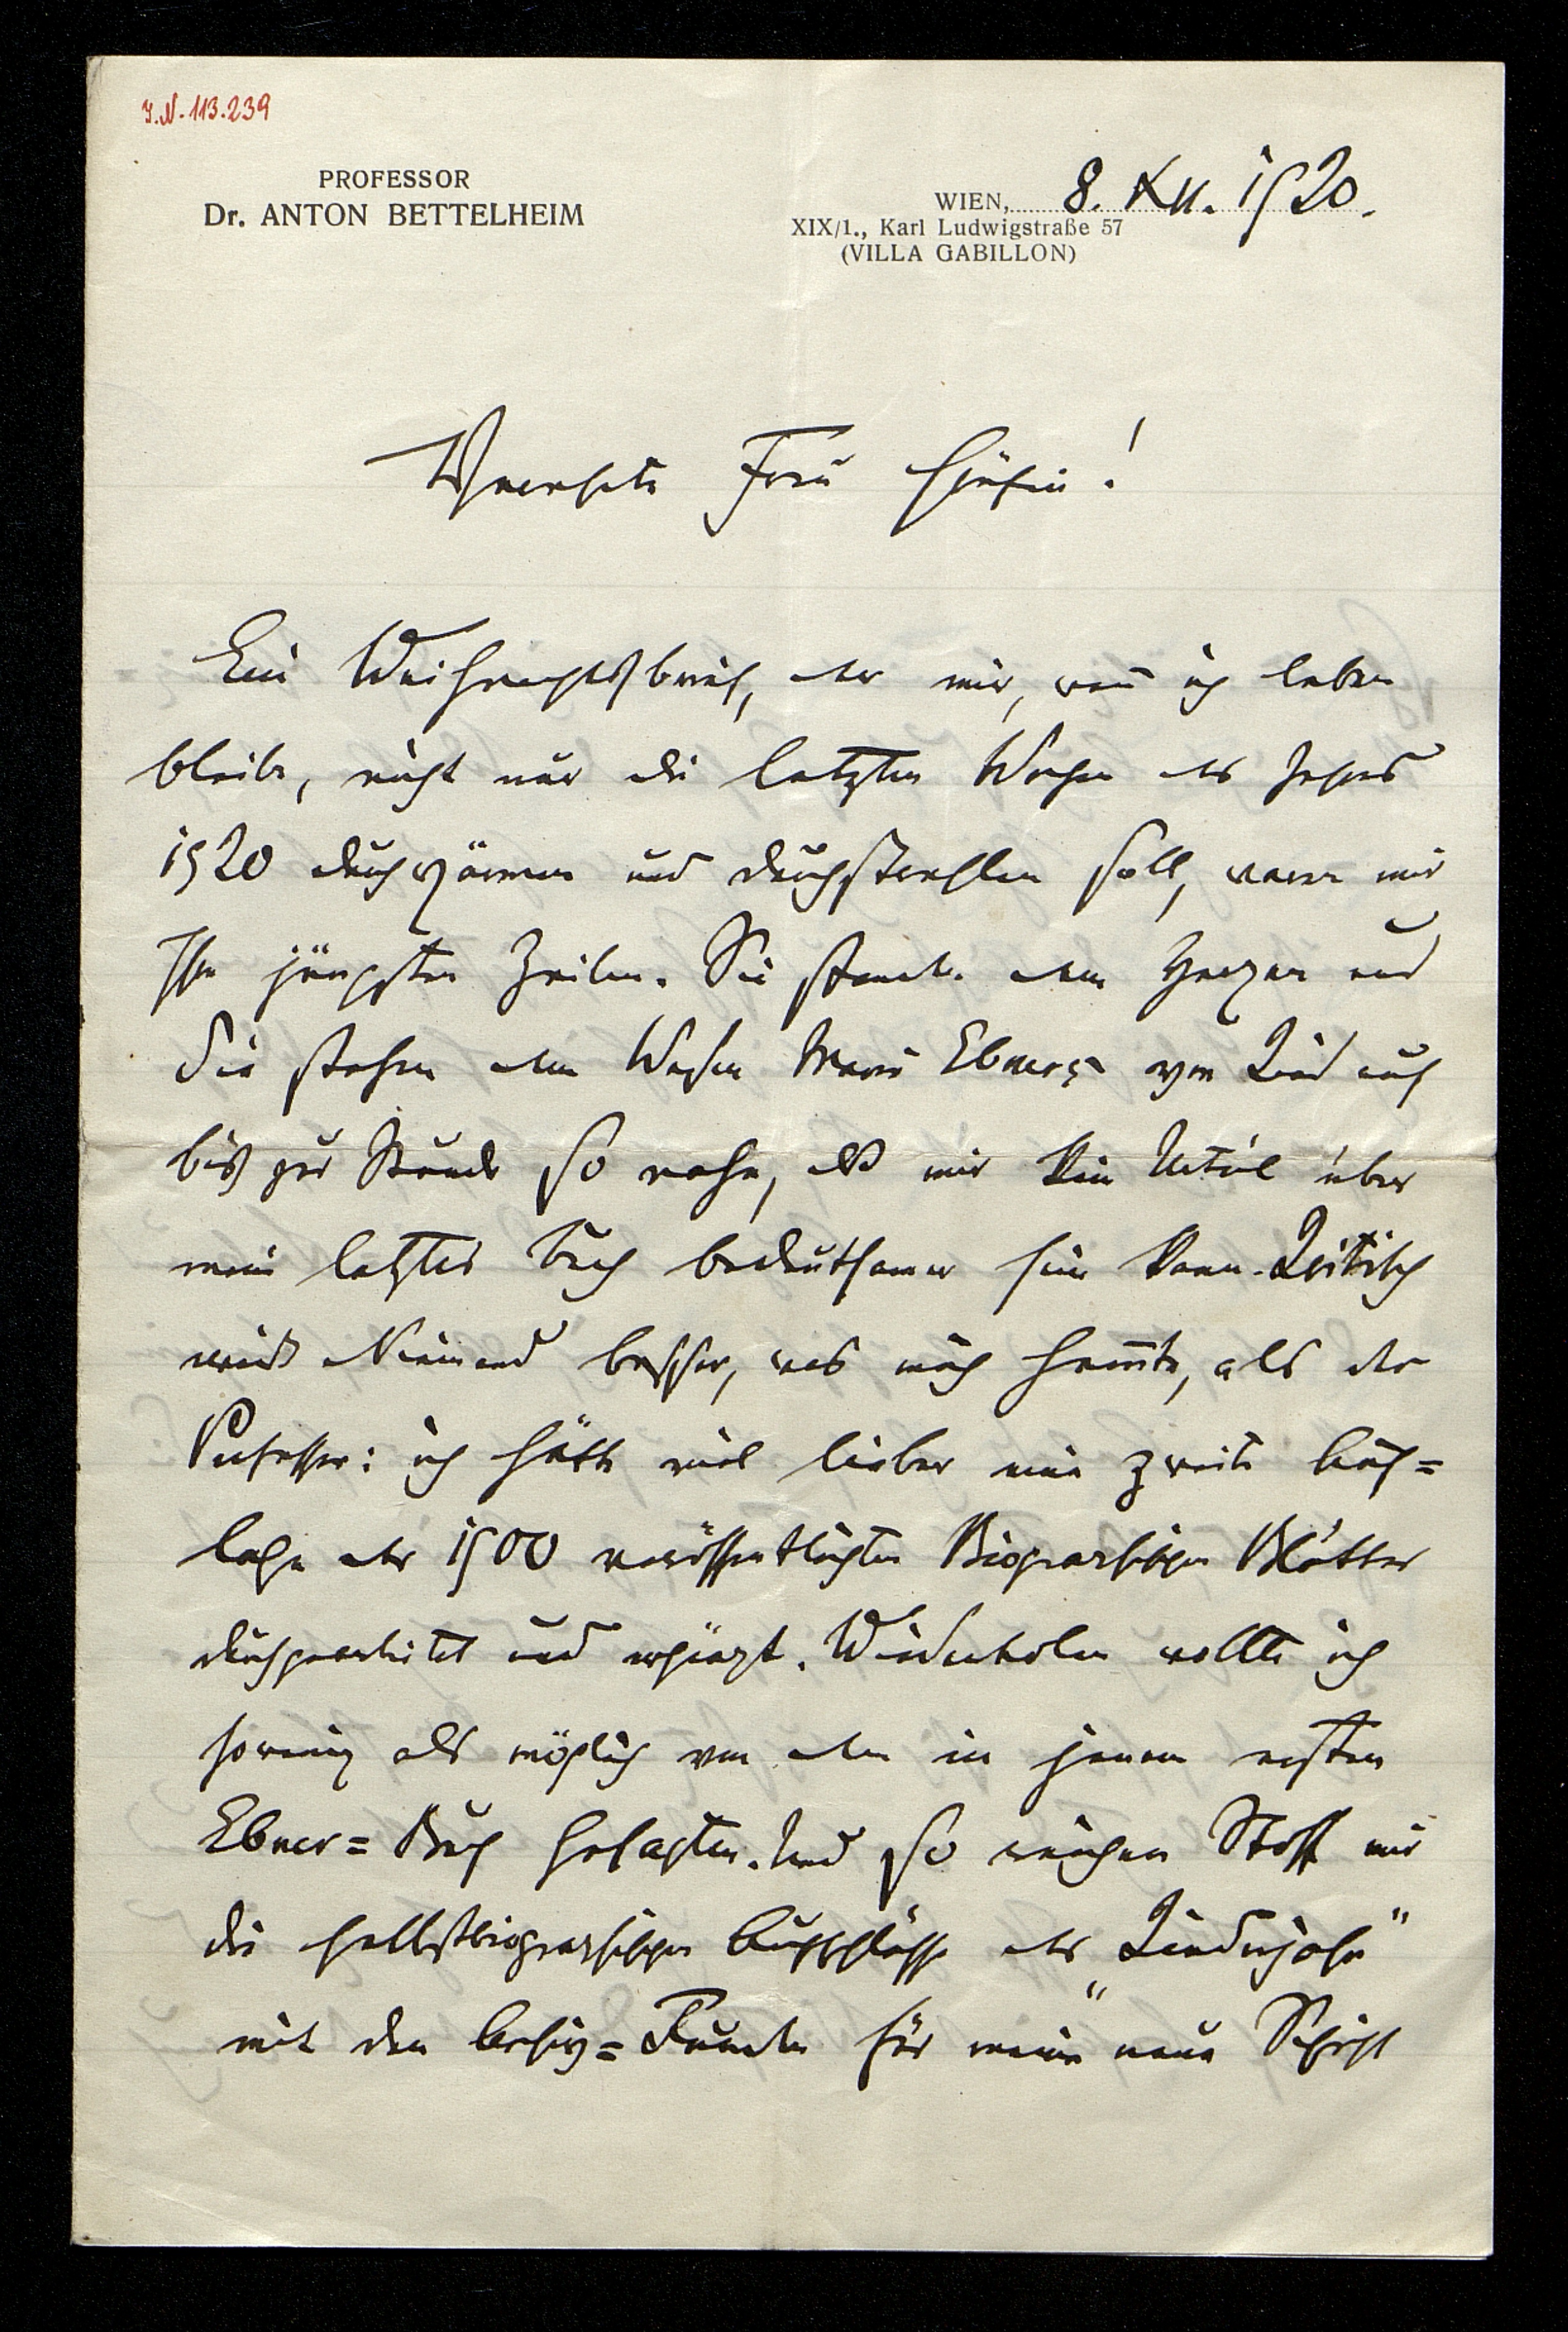 I.N. 113.239
PROFESSOR
Dr. ANTON BETTELHEIM
WIEN, 8. XII. 1920.
XIX/1., Karl Ludwigstraße 57
(VILLA GABILLON)
Verehrte Frau Gräfin!
Ein Weihnachtsbrief, der mir, wenn ich leben
bleibe, nicht nur die letzten Wochen des Jahres
1920 durchwärmen und durchstrahlen soll, waren mir
Ihre jüngsten Zeilen. Sie standen dem Herzen und
Sie stehen dem Wesen Marie Ebners von Kind auf
bis zur Stunde so nahe, daß mir kein Urteil über
mein letztes Buch bedeutsamer sein kann. Kritisch
weiß Niemand besser, was mich hemmte, als der
Verfasser: ich hätte viel lieber eine zweite Auf=
lage der 1900 veröffentlichten Biographischen Blätter
durchgearbeitet und ergänzt. Wiederholen wollte ich
so wenig als möglich von dem in jenem ersten
Ebner=Buch Gesagten. Und so reichen Stoff mir
die selbstbiographischen Aufschlüsse der „Kinderjahre"
mit den Archiv=Funden für meine neue Schrift